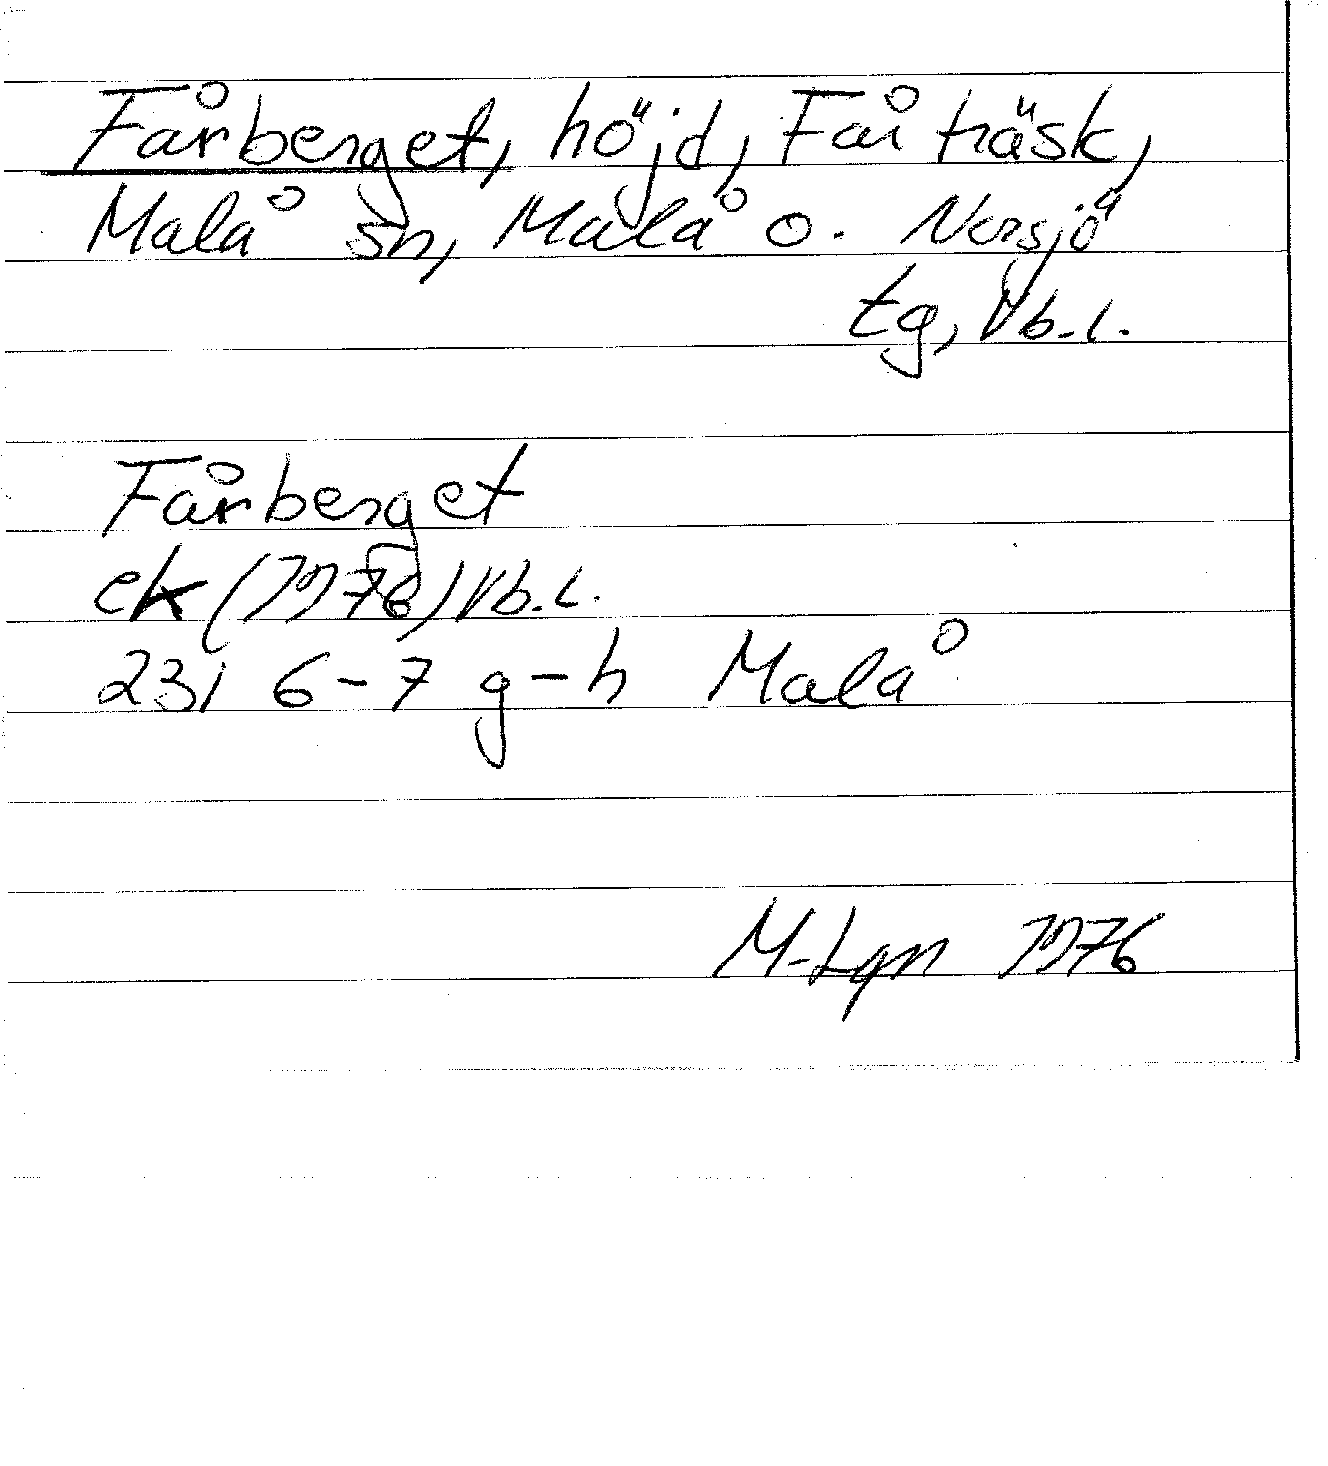 Fårberget, höjd, Fårträsk,
Malå sn, Malå o. Norsjö
tg, Vb.l.
Fårberget
ek (1976) Vb.l.
23i 6-7 g-h Malå
M-Lgn 1976